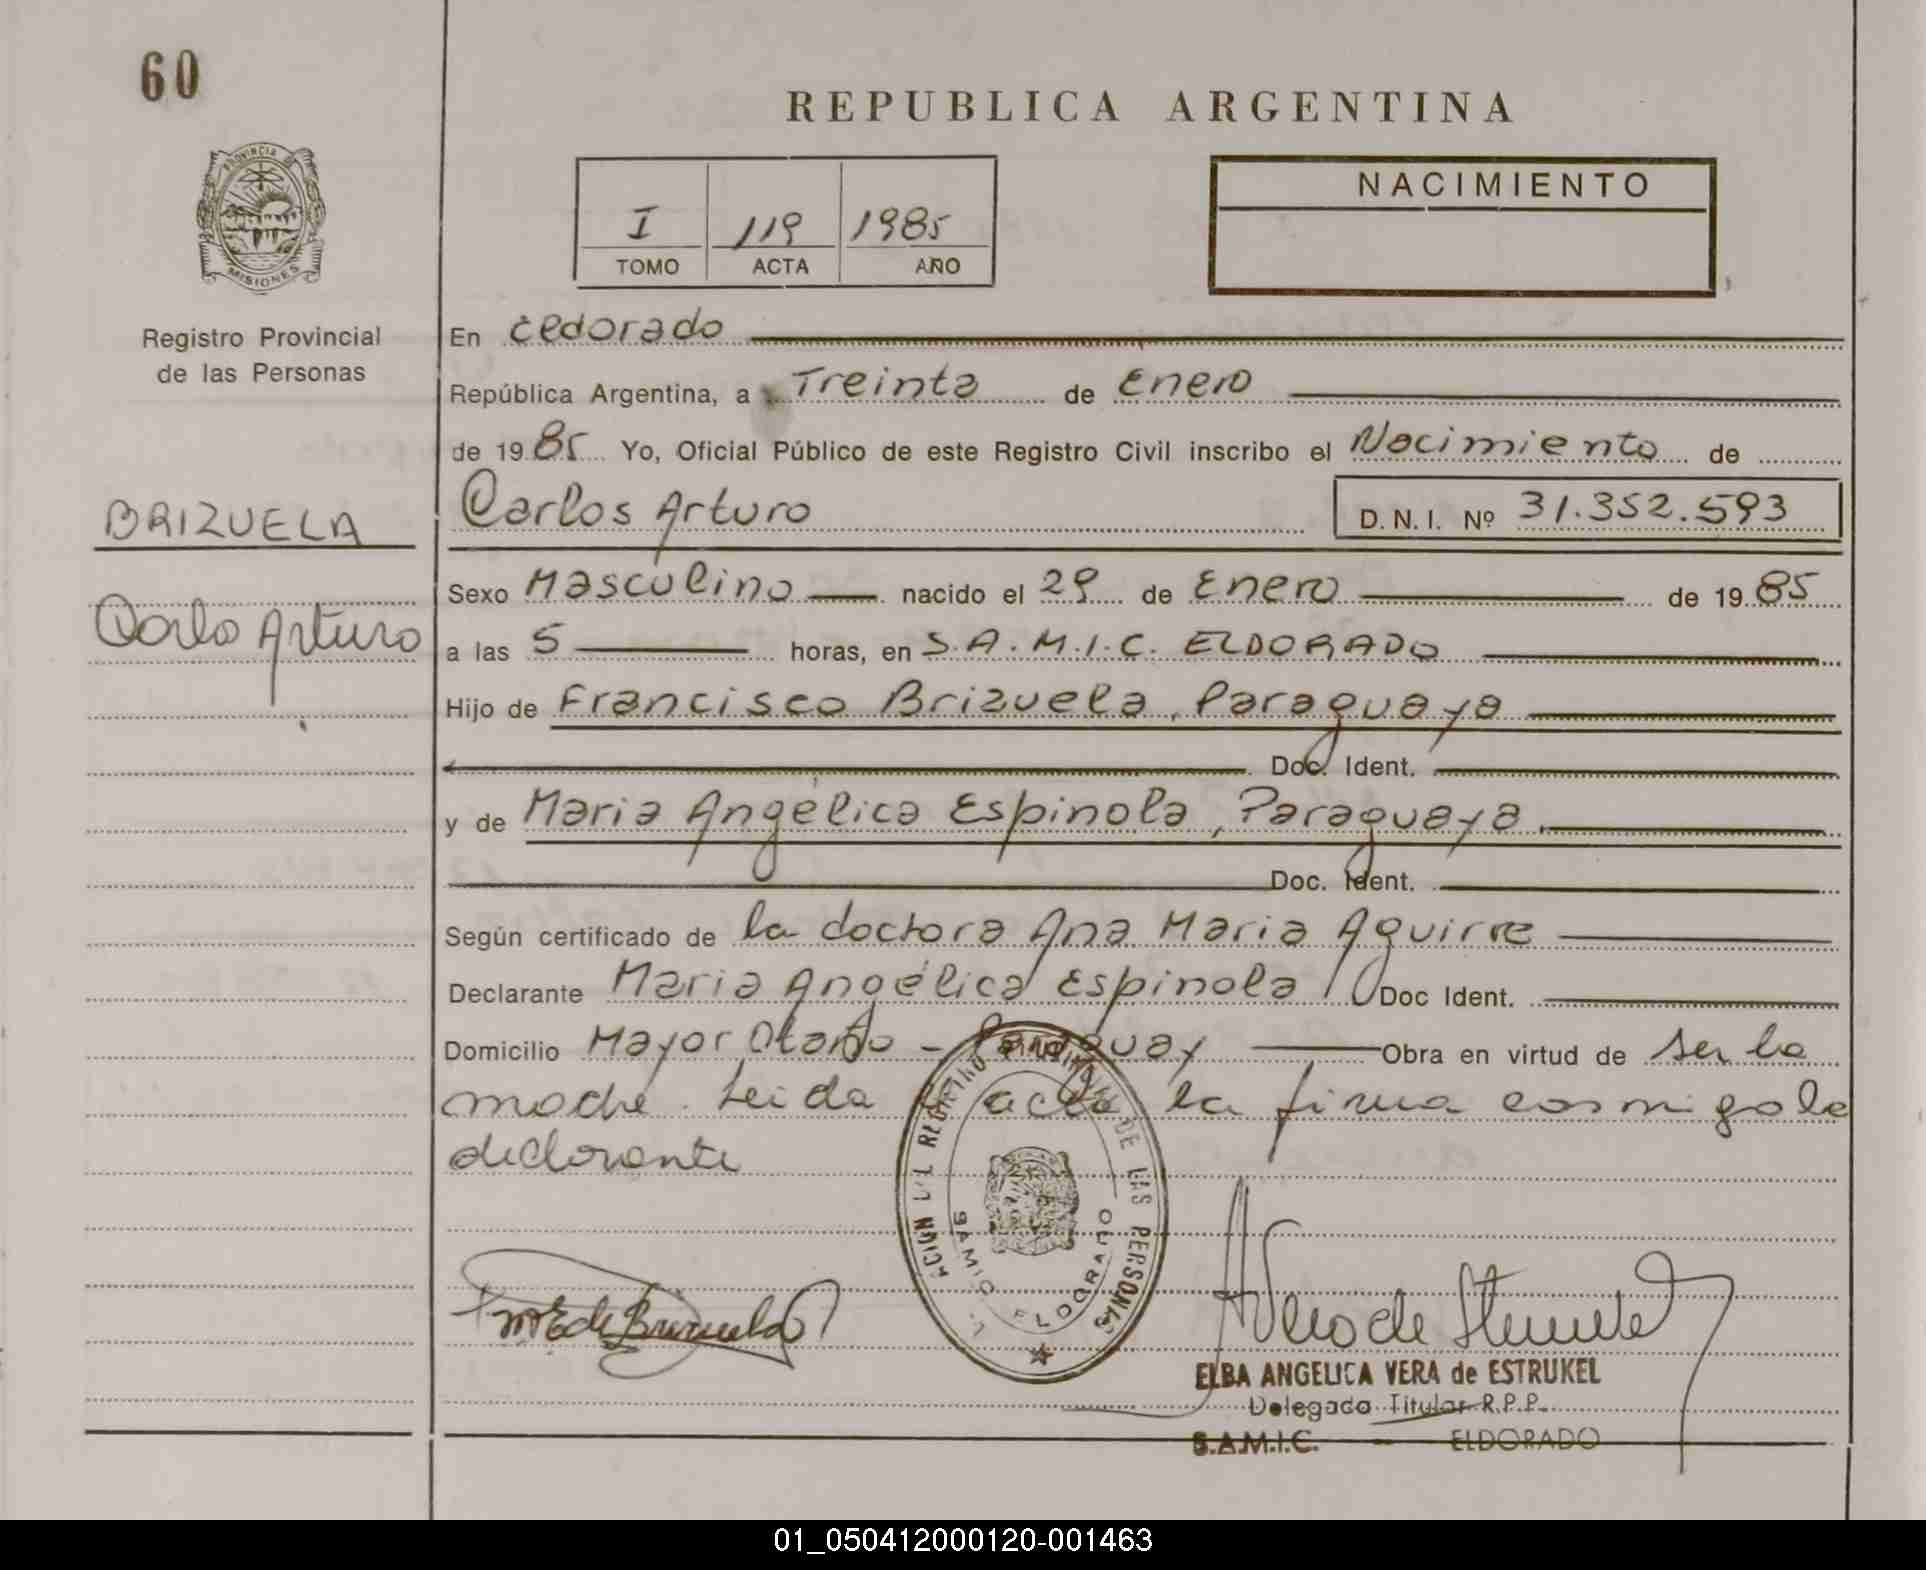 60
REPUBLICA ARGENTINA
PROVINCIA DE
MISIONES
I 119 1985
TOMO ACTA AÑO
NACIMIENTO
Registro Provincial
de las Personas
En Eldorado
República Argentina, a Treinta de Enero
de 1985 Yo, Oficial Público de este Registro Civil inscribo el Nacimiento de
BRIZUELA
Carlos Arturo D.N.I. Nº 31.352.593
Carlos Arturo
Sexo Masculino nacido el 29 de Enero de 1985
a las 5 horas, en S.A.M.I.C. ELDORADO
Hijo de Francisco Brizuela, Paraguaya
Doc. Ident.
y de Maria Angélica Espinola, Paraguaya
Doc. Ident.
Según certificado de la doctora Ana Maria Aguirre
Declarante Maria Angélica Espinola Doc Ident.
Domicilio Mayor Otaño - Paraguay Obra en virtud de ser la
madre. Leida el acta la firma conmigo la
declarante
DEL REGISTRO PROVINCIAL DE LAS PERSONAS
SAMIC ELDORADO
M E de Brizuela
A Vera de Estrukel
ELBA ANGELICA VERA de ESTRUKEL
Delegado Titular R.P.P.
S.A.M.I.C. - ELDORADO
01_050412000120-001463